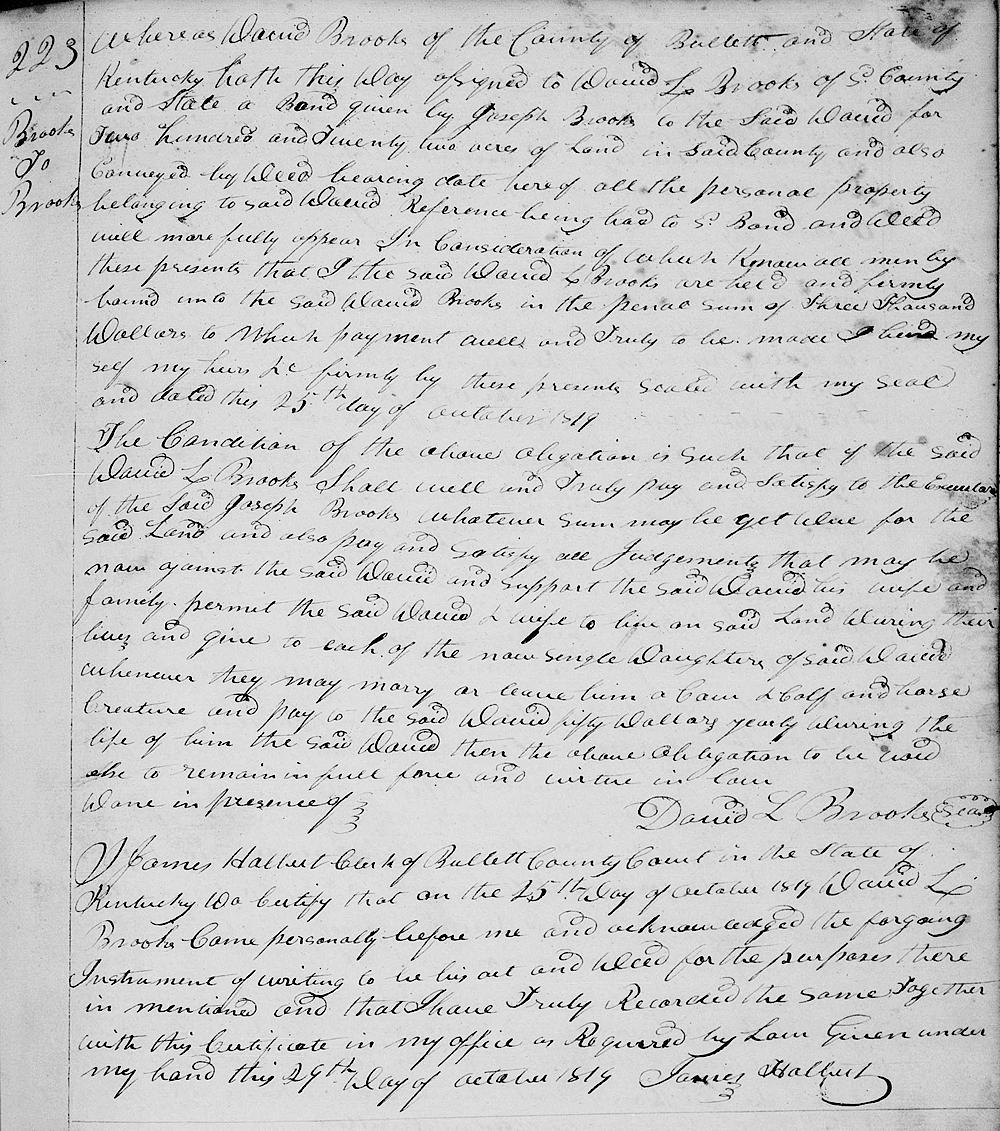 223
Brooks
To
Brooks
Whereas David Brooks of the County of Bullett and State of
Kentucky hath this Day assigned to David L Brooks of Sd. County
and State a Bond given by Joseph Brooks to the Said David for
Two hundred and Twenty two acres of Land in Said County and also
Conveyed by Deed bearing date hereof all the personal property
belonging to said David Reference being had to Sd. Bond and Deed
will more fully appear In Consideration of Which Know all men by
these presents that I the said David L Brooks are held and firmly
bound unto the said David Brooks in the penal sum of Three Thousand
Dollars to Which payment well and Truly to be made I bind my
self my heirs &c firmly by these presents sealed with my seal
and dated this 25th day of october 1819
The Condition of the above obligation is such that if the said
David L Brooks Shall well and Truly pay and Satisfy to the Executors
of the Said Joseph Brooks whatever sum may be yet due for the
said Land and also pay and satisfy all Judgements that may be
now against the said David and support the said David his wife and
family. permit the said David & wife to live on said Land During their
lives and give to each of the now single Daughters of said David
whenever they may marry or leave him a Cow & Calf and horse
Creature and pay to the said David fifty Dollars yearly During the
life of him the said David then the above obligation to be void
else to remain in full force and virtue in law
Done in presence of
David L Brooks Seal
I James Halbert Clerk of Bullett County Court in the State of
Kentucky Do Certify that on the 25th Day of october 1819 David L
Brooks Came personally before me and acknowledged the forgoing
Instrument of writing to be his act and Deed for the purposes there
in mentioned and that I have Truly Recorded the same Together
with this Certificate in my office as Required by Law Given under
my hand this 29th Day of october 1819 James Halbert